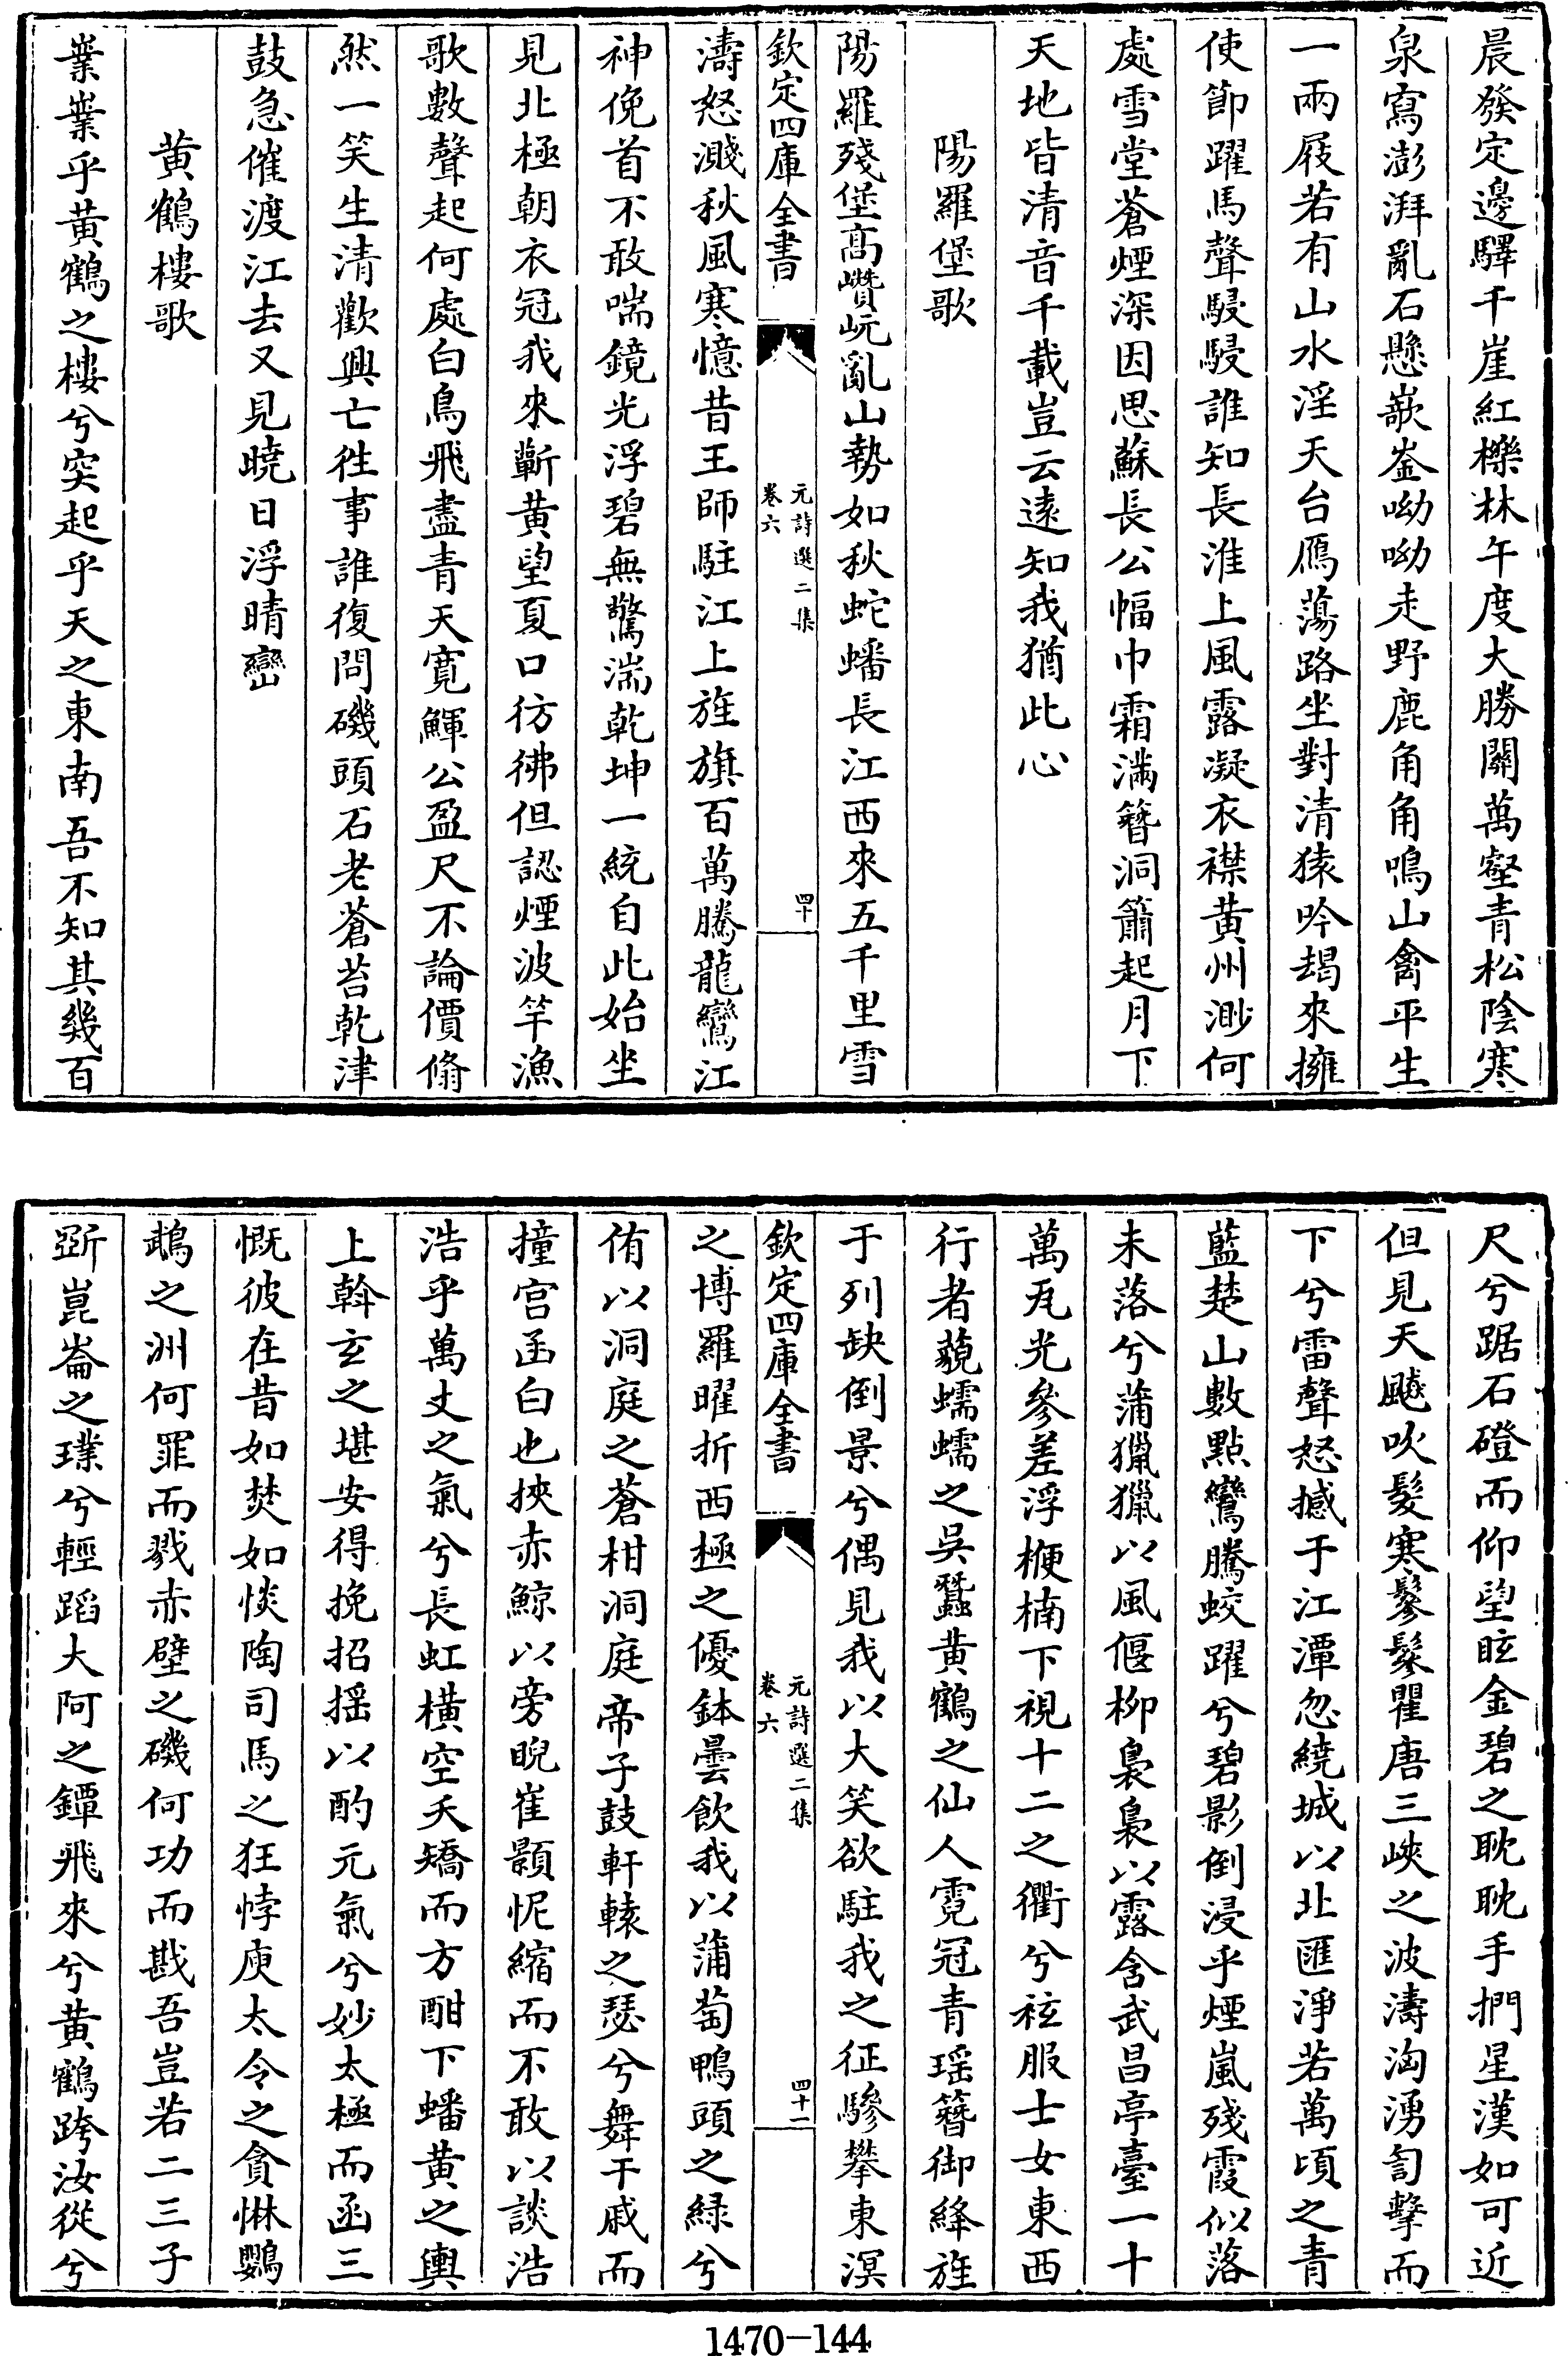 晨發定邊驛千崖紅櫟林午度大勝關萬壑青松陰寒
泉寫澎湃亂石懸嶔崟呦呦走野鹿角角鳴山禽平生
一兩屐若有山水淫天台鴈蕩路坐對清猿吟朅來擁
使節躍馬聲駸駸誰知長淮上風露凝衣襟黄州渺何
處雪堂蒼煙深因思蘇長公幅巾霜滿簪洞簫起月下
天地皆清音千載豈云遠知我猶此心
陽羅堡歌
陽羅殘堡高巑岏亂山勢如秋蛇蟠長江西來五千里雪
欽定四庫全書
元詩選二集
卷六
四十
濤怒濺秋風寒憶昔王師駐江上旌旗百萬騰龍鸞江
神俛首不敢喘鏡光浮碧無驚湍乾坤一統自此始坐
見北極朝衣冠我來蘄黄望夏口彷彿但認煙波竿漁
歌數聲起何處白鳥飛盡青天寬鯶公盈尺不論價翛
然一笑生清歡興亡徃事誰復問磯頭石老蒼苔乾津
鼓急催渡江去又見曉日浮晴巒
黄鶴樓歌
業業乎黄鶴之樓兮突起乎天之東南吾不知其幾百
尺兮踞石磴而仰望眩金碧之耽耽手捫星漢如可近
但見天飈吹髮寒鬖鬖瞿唐三峽之波濤洶湧訇擊而
下兮雷聲怒撼于江潭忽繞城以北匯淨若萬頃之青
藍楚山數點鸞騰蛟躍兮碧影倒浸乎煙嵐殘霞似落
未落兮蒲獵獵以風偃柳裊裊以露含武昌亭臺一十
萬瓦光參差浮楩楠下視十二之衢兮袨服士女東西
行者藐蠕蠕之吳蠶黄鶴之仙人霓冠青瑶簪御絳旌
于列缺倒景兮偶見我以大笑欲駐我之征驂攀東溟
欽定四庫全書
元詩選二集
卷六
四十一
之博羅曜折西極之優鉢曇飲我以蒲萄鴨頭之緑兮
侑以洞庭之蒼柑洞庭帝子鼓軒轅之瑟兮舞干戚而
撞宫函白也挾赤鯨以旁睨崔顥怩縮而不敢以談浩
浩乎萬丈之氣兮長虹橫空夭矯而方酣下蟠黄之輿
上斡玄之堪安得挽招揺以酌元氣兮妙太極而函三
慨彼在昔如焚如惔陶司馬之狂悖庾太令之貪惏鸚
鵡之洲何罪而戮赤壁之磯何功而戡吾豈若二三子
斲崑崙之璞兮輕蹈大阿之鐔飛來兮黄鶴跨汝從兮
1470-144